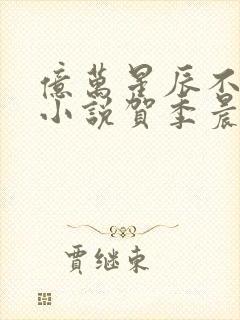 億萬星辰不
小說賀季晨
賈继東